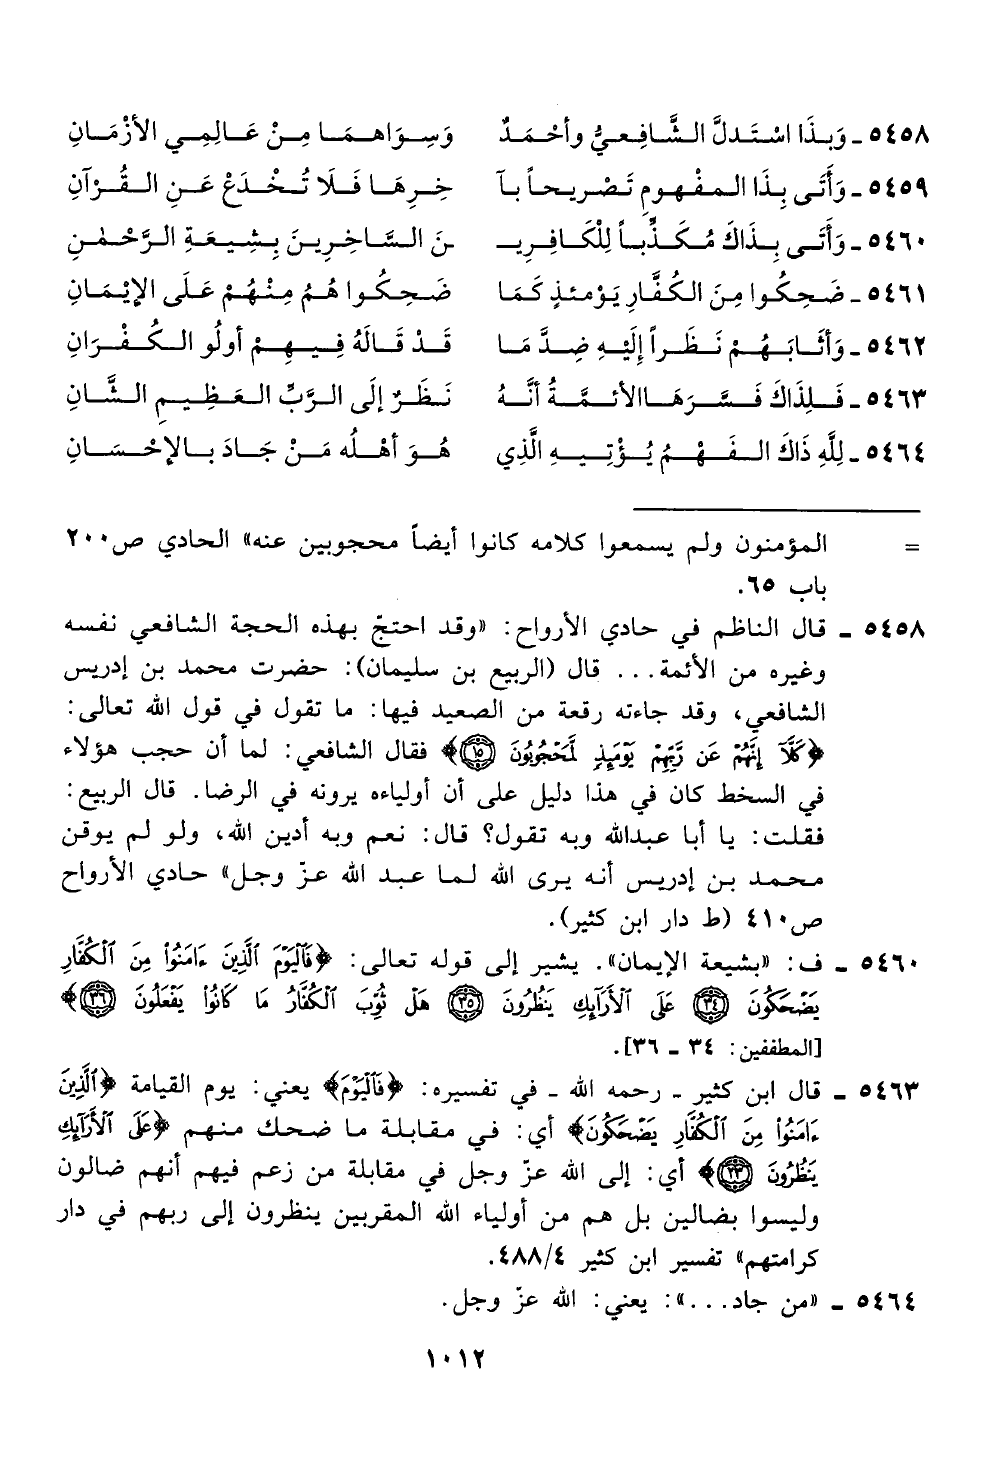 ٥٤٥٨ ـ وَبِذَا اسْتَدلَّ الشَّافِعيُّ وأحْمَدٌ وَسِوَاهمَا مِنْ عَالِمِي الأزْمَانِ
٥٤٥٩ ـ وَأَتَى بِذَا المفْهومِ تَصْرِيحاً بآ خِرِهَا فَلَا تُخْدَعْ عَنِ القُرْآنِ
٥٤٦٠ ـ وَأَتَى بِذَاكَ مُكَذِّباً لِلْكَافِريـ ـنَ السَّاخِرِينَ بِشِيعَةِ الرَّحْمٰنِ
٥٤٦١ ـ ضَحِكُوا مِنَ الكُفَّارِ يَوْمئذٍ كَمَا ضَحِكُوا هُمُ مِنْهُمْ عَلَى الإيْمَانِ
٥٤٦٢ ـ وَأثَابَهُمْ نَظَراً إلَيْهِ ضِدَّ مَا قَدْ قَالَهُ فِيهِمْ أولُو الكُفْرَانِ
٥٤٦٣ ـ فَلِذَاكَ فَسَّرَهَا الأئمَّةُ أنَّهُ نَظَرٌ إلَى الرَّبِّ العَظِيمِ الشَّانِ
٥٤٦٤ ـ لِلَّهِ ذَاكَ الفَهْمُ يُؤْتِيهِ الَّذِي هُوَ أهْلُه مَنْ جَادَ بالإحْسَانِ
= المؤمنون ولم يسمعوا كلامه كانوا أيضاً محجوبين عنه» الحادي ص٢٠٠
باب ٦٥.
٥٤٥٨ ـ قال الناظم في حادي الأرواح: «وقد احتجّ بهذه الحجة الشافعي نفسه
وغيره من الأئمة... قال (الربيع بن سليمان): حضرت محمد بن إدريس
الشافعي، وقد جاءته رقعة من الصعيد فيها: ما تقول في قول الله تعالى:
﴿كَلَّآ إِنَّهُمْ عَن رَّبِّهِمْ يَوْمَئِذٍ لَّمَحْجُوبُونَ ۝١٥﴾ فقال الشافعي: لما أن حجب هؤلاء
في السخط كان في هذا دليل على أن أولياءه يرونه في الرضا. قال الربيع:
فقلت: يا أبا عبدالله وبه تقول؟ قال: نعم وبه أدين الله، ولو لم يوقن
محمد بن إدريس أنه يرى الله لما عبد الله عزّ وجل» حادي الأرواح
ص٤١٠ (ط دار ابن كثير).
٥٤٦٠ ـ ف: «بشيعة الإيمان». يشير إلى قوله تعالى: ﴿فَٱلْيَوْمَ ٱلَّذِينَ ءَامَنُوا۟ مِنَ ٱلْكُفَّارِ
يَضْحَكُونَ ۝٣٤ عَلَى ٱلْأَرَآئِكِ يَنظُرُونَ ۝٣٥ هَلْ ثُوِّبَ ٱلْكُفَّارُ مَا كَانُوا۟ يَفْعَلُونَ ۝٣٦﴾
[المطففين: ٣٤ ـ ٣٦].
٥٤٦٣ ـ قال ابن كثير ـ رحمه الله ـ في تفسيره: ﴿فَٱلْيَوْمَ﴾ يعني: يوم القيامة ﴿ٱلَّذِينَ
ءَامَنُوا۟ مِنَ ٱلْكُفَّارِ يَضْحَكُونَ﴾ أي: في مقابلة ما ضحك منهم ﴿عَلَى ٱلْأَرَآئِكِ
يَنظُرُونَ ۝٢٣﴾ أي: إلى الله عزّ وجل في مقابلة من زعم فيهم أنهم ضالون
وليسوا بضالين بل هم من أولياء الله المقربين ينظرون إلى ربهم في دار
كرامتهم» تفسير ابن كثير ٤٨٨/٤.
٥٤٦٤ ـ «من جاد...»: يعني: الله عزّ وجل.
١٠١٢